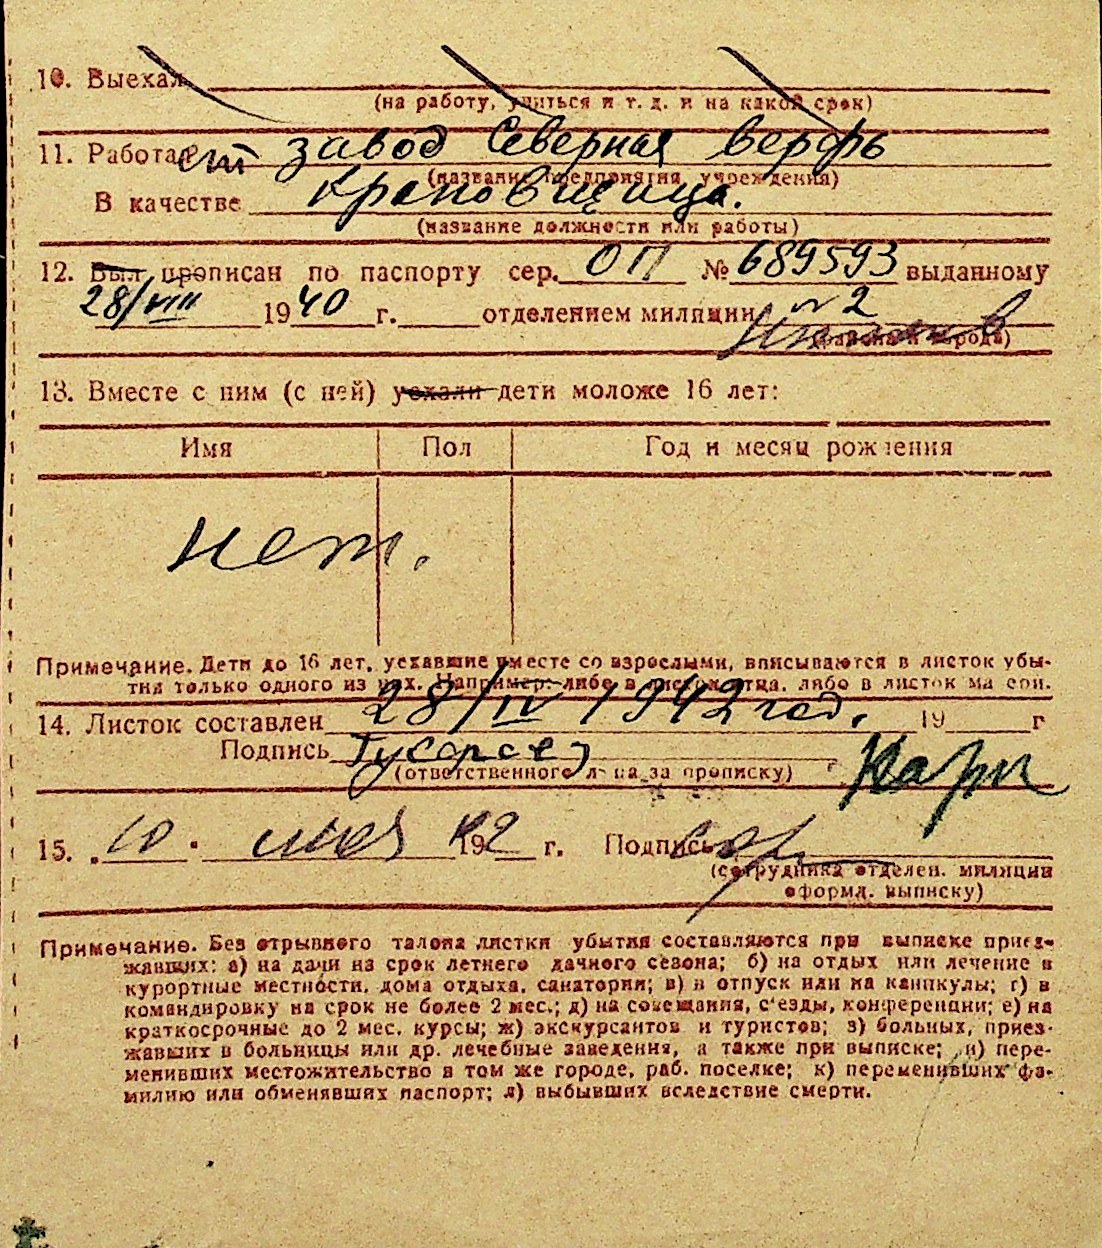 10. Выехал
(на работу, учиться и т. д. и на какой срок)
11. Работает завод Северная верфь
(название предприятия, учреждения)
В качестве крановщица.
(название должности или работы)
12. Был прописан по паспорту сер. ОП № 689593 выданному
28/VIII 1940 г. отделением милиции №2
(района и города)
13. Вместе с ним (с ней) уехали дети моложе 16 лет:
Имя Пол Год и месяц рождения
нет.
Примечание. Дети до 16 лет, уехавшие вместе со взрослыми, вписываются в листок убы-
тия только одного из них. Например: либо в листок отца, либо в листок матери.
14. Листок составлен 28/IV 1942 год. 19 г
Подпись
(ответственного лица за прописку)
15. 10. мая 1942 г. Подпись
(сотрудника отделен. милиции
оформл. выписку)
Примечание. Без отрывного талона листки убытия составляются при выписке приез-
жавших: а) на дачи на срок летнего дачного сезона; б) на отдых или лечение в
курортные местности, дома отдыха, санатории; в) в отпуск или на каникулы; г) в
командировку на срок не более 2 мес.; д) на совещания, съезды, конференции; е) на
краткосрочные до 2 мес. курсы; ж) экскурсантов и туристов; з) больных, приез-
жавших в больницы или др. лечебные заведения, а также при выписке; и) пере-
менивших местожительство в том же городе, раб. поселке; к) переменивших фа-
милию или обменявших паспорт; л) выбывших вследствие смерти.